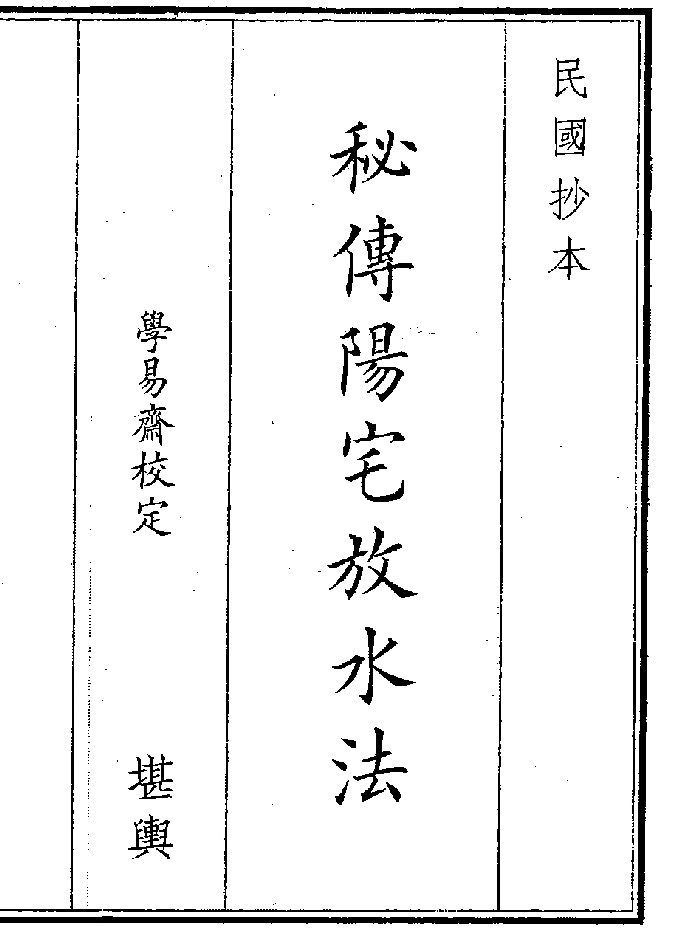 民國抄本
秘傳陽宅放水法
學易齋校定
堪輿